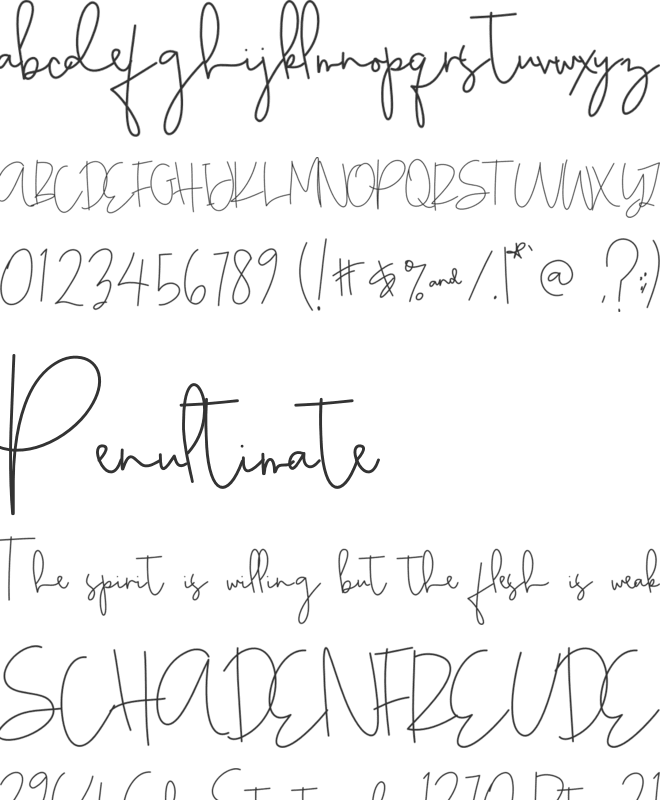 abcdefghijklmnopqrsTuvwxyz
ABCDEFGHIJKLMNOPQRSTUVWXYZ
0123456789 (!#$%and/.|*` @ ,?:;)
Penultimate
The spirit is willing but the flesh is weak
SCHADENFREUDE